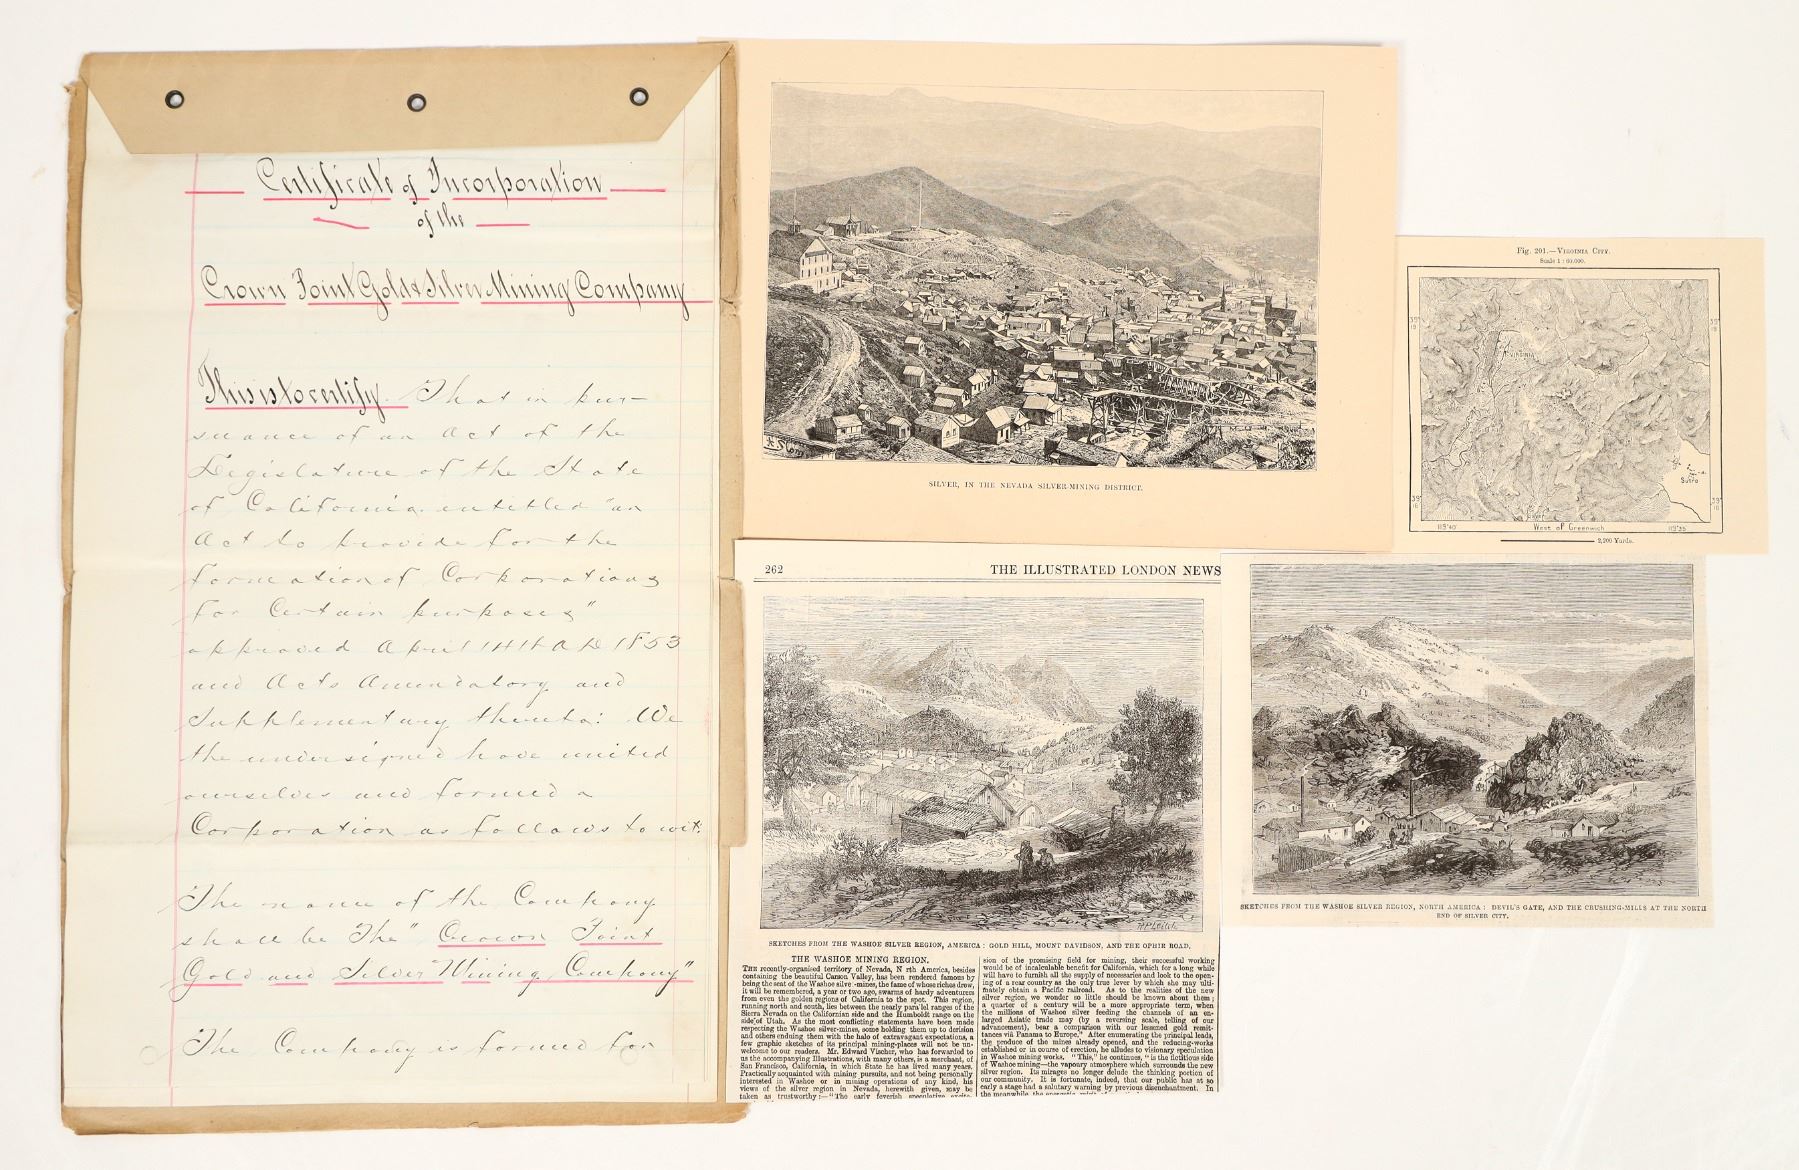 Certificate of Incorporation
of the
Crown Point Gold & Silver Mining Company
This is to certify. That in pur-
suance of an Act of the
Legislature of the State
of California entitled "an
Act to provide for the
formation of Corporations
for Certain purposes"
approved April 14th A D 1853
and Acts Amendatory and
Supplementary thereto: We
the undersigned have united
ourselves and formed a
Corporation as follows to wit:
The name of the Company
shall be The "Crown Point
Gold and Silver Mining Company"
The Company is formed for
SILVER, IN THE NEVADA SILVER-MINING DISTRICT.
Fig. 201.—VIRGINIA CITY.
Scale 1 : 60,000.
39°
39°
VIRGINIA
Sutro
Silver
39°
16'
39°
16'
119°40'
West of Greenwich
119°35'
2,200 Yards.
262
THE ILLUSTRATED LONDON NEWS
SKETCHES FROM THE WASHOE SILVER REGION, AMERICA: GOLD HILL, MOUNT DAVIDSON, AND THE OPHIR ROAD.
THE WASHOE MINING REGION.
THE recently-organised territory of Nevada, N rth America, besides
containing the beautiful Carson Valley, has been rendered famous by
being the seat of the Washoe silve -mines, the fame of whose riches drew,
it will be remembered, a year or two ago, swarms of hardy adventurers
from even the golden regions of California to the spot. This region,
running north and south, lies between the nearly para'lel ranges of the
Sierra Nevada on the Californian side and the Humboldt range on the
side of Utah. As the most conflicting statements have been made
respecting the Washoe silver-mines, some holding them up to derision
and others enduing them with the halo of extravagant expectations, a
few graphic sketches of its principal mining-places will not be un-
welcome to our readers. Mr. Edward Vischer, who has forwarded to
us the accompanying Illustrations, with many others, is a merchant, of
San Francisco, California, in which State he has lived many years.
Practically acquainted with mining pursuits, and not being personally
interested in Washoe or in mining operations of any kind, his
views of the silver region in Nevada, herewith given, may be
taken as trustworthy:—"The early feverish speculative excite-
sion of the promising field for mining, their successful working
would be of incalculable benefit for California, which for a long while
will have to furnish all the supply of necessaries and look to the open-
ing of a rear country as the only true lever by which she may ulti-
mately obtain a Pacific railroad. As to the realities of the new
silver region, we wonder so little should be known about them;
a quarter of a century will be a more appropriate term, when
the millions of Washoe silver feeding the channels of an en-
larged Asiatic trade may (by a reversing scale, telling of our
advancement), bear a comparison with our lessened gold remit-
tances viâ Panama to Europe." After enumerating the principal leads,
the produce of the mines already opened, and the reducing-works
established or in course of erection, he alludes to visionary speculation
in Washoe mining works. "This," he continues, "is the fictitious side
of Washoe mining—the vapoury atmosphere which surrounds the new
silver region. Its mirages no longer delude the thinking portion of
our community. It is fortunate, indeed, that our public has at so
early a stage had a salutary warning by previous disenchantment. In
the meanwhile the energetic
SKETCHES FROM THE WASHOE SILVER REGION, NORTH AMERICA: DEVIL'S GATE, AND THE CRUSHING-MILLS AT THE NORTH
END OF SILVER CITY.